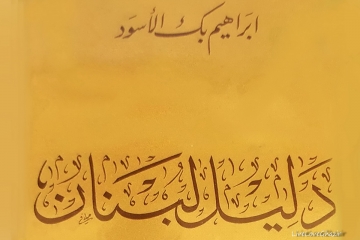 ابراهيم بك الأسود
دليل لبنان